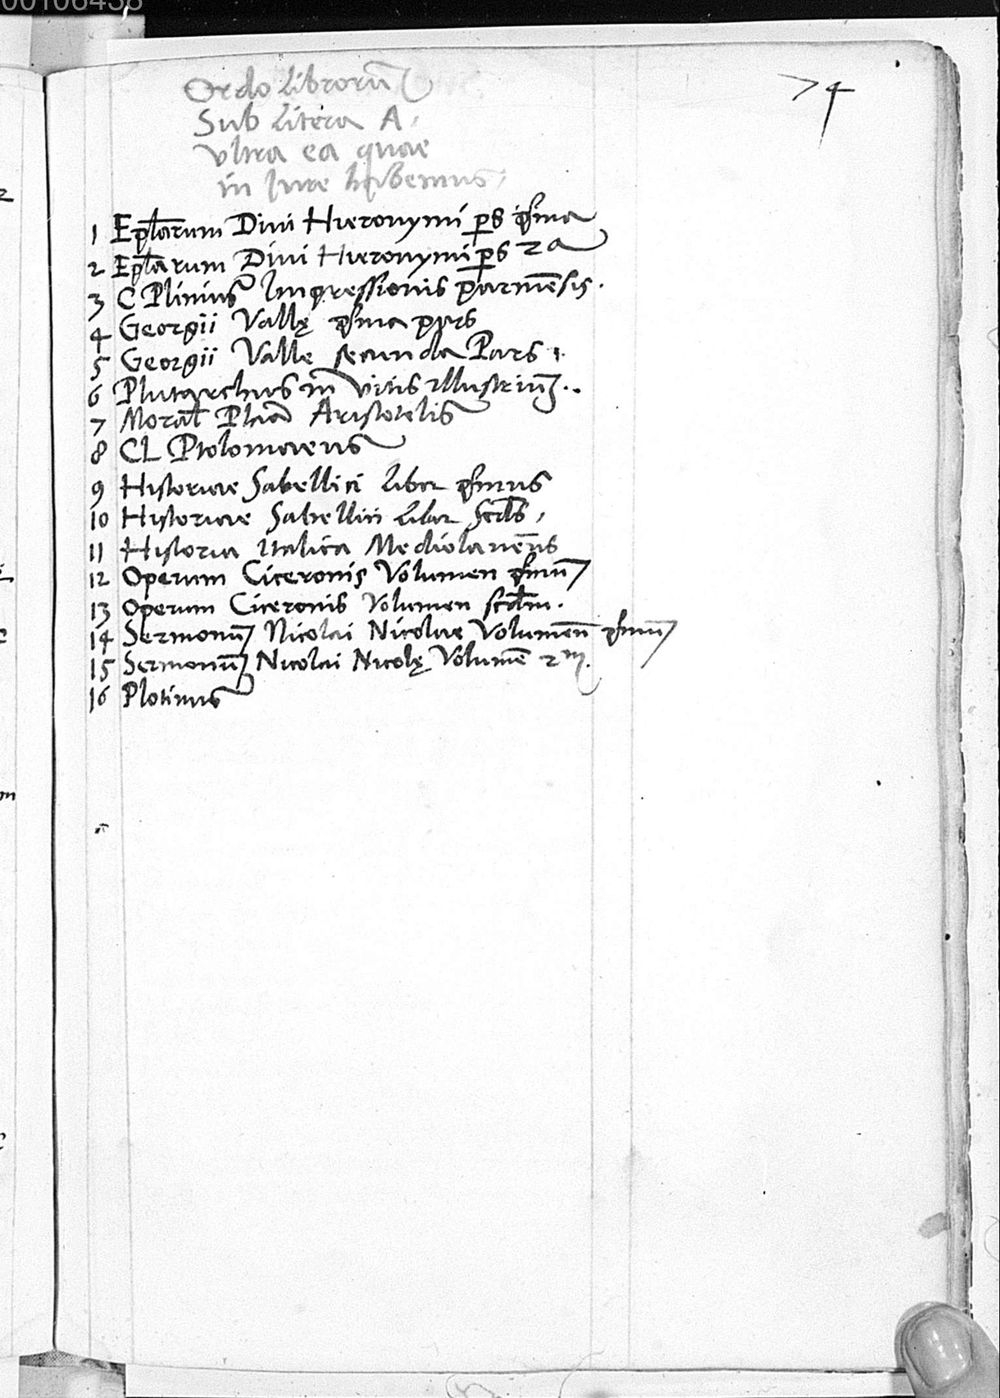 00106438
74
Ordo librorũ
Sub litera A.
vltra ea quae
in Jure habemus
1 Epłarum Diui Hieronymi ps p̃ima
2 Epłarum Diui Hieronymi ps 2a
3 C Plinius Impressionis parmẽsis.
4 Georgii Vallę p̃ima pars
5 Georgii Valle secunda Pars.
6 Plutarchus in vitis illustriuȝ..
7 Morał Aristotelis
8 CL Ptolomaeus
9 Historiae Sabellici liber p̃imus
10 Historiae Sabellici liber scďs,
11 Historia Italica Mediolanẽns
12 Operum Ciceronis Volumen p̃imũ
13 Operum Ciceronis Volumen scďm.
14 Sermonũ Nicolai Nicolae Volumẽn p̃imũ
15 Sermonũ Nicolai Nicolę Volumẽ 2m.
16 Plotinus